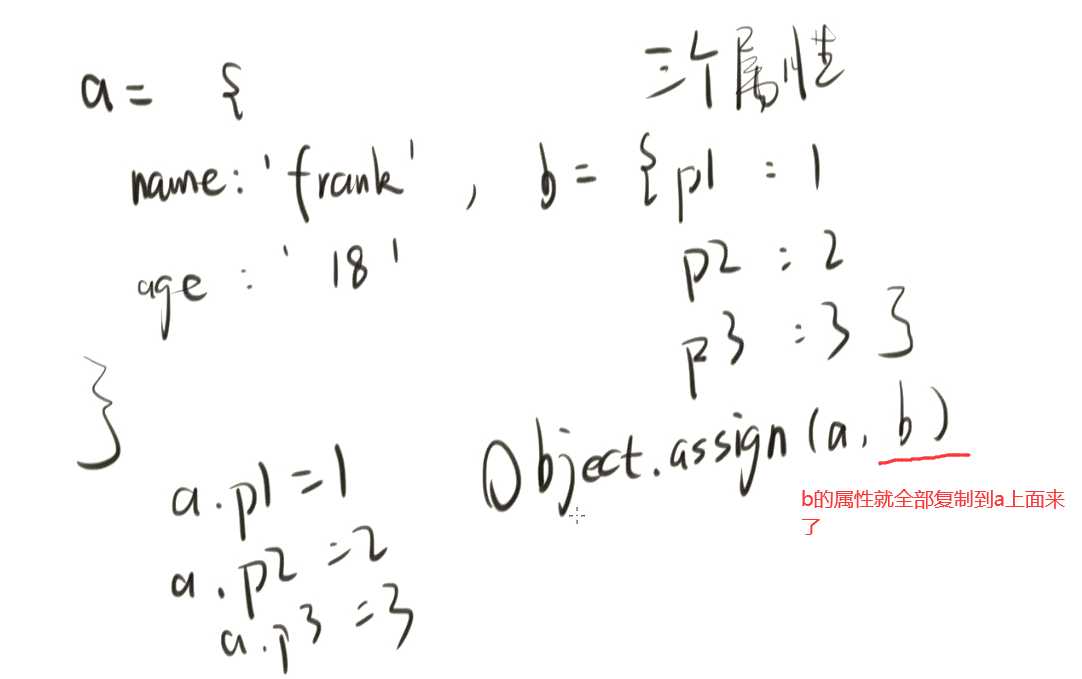 a= {
name:'frank'
age : '18'
}
,
三个属性
b= {p1 : 1
p2 : 2
p3 : 3 }
Object.assign(a, b)
b的属性就全部复制到a上面来
了
a.p1=1
a.p2=2
a.p3=3